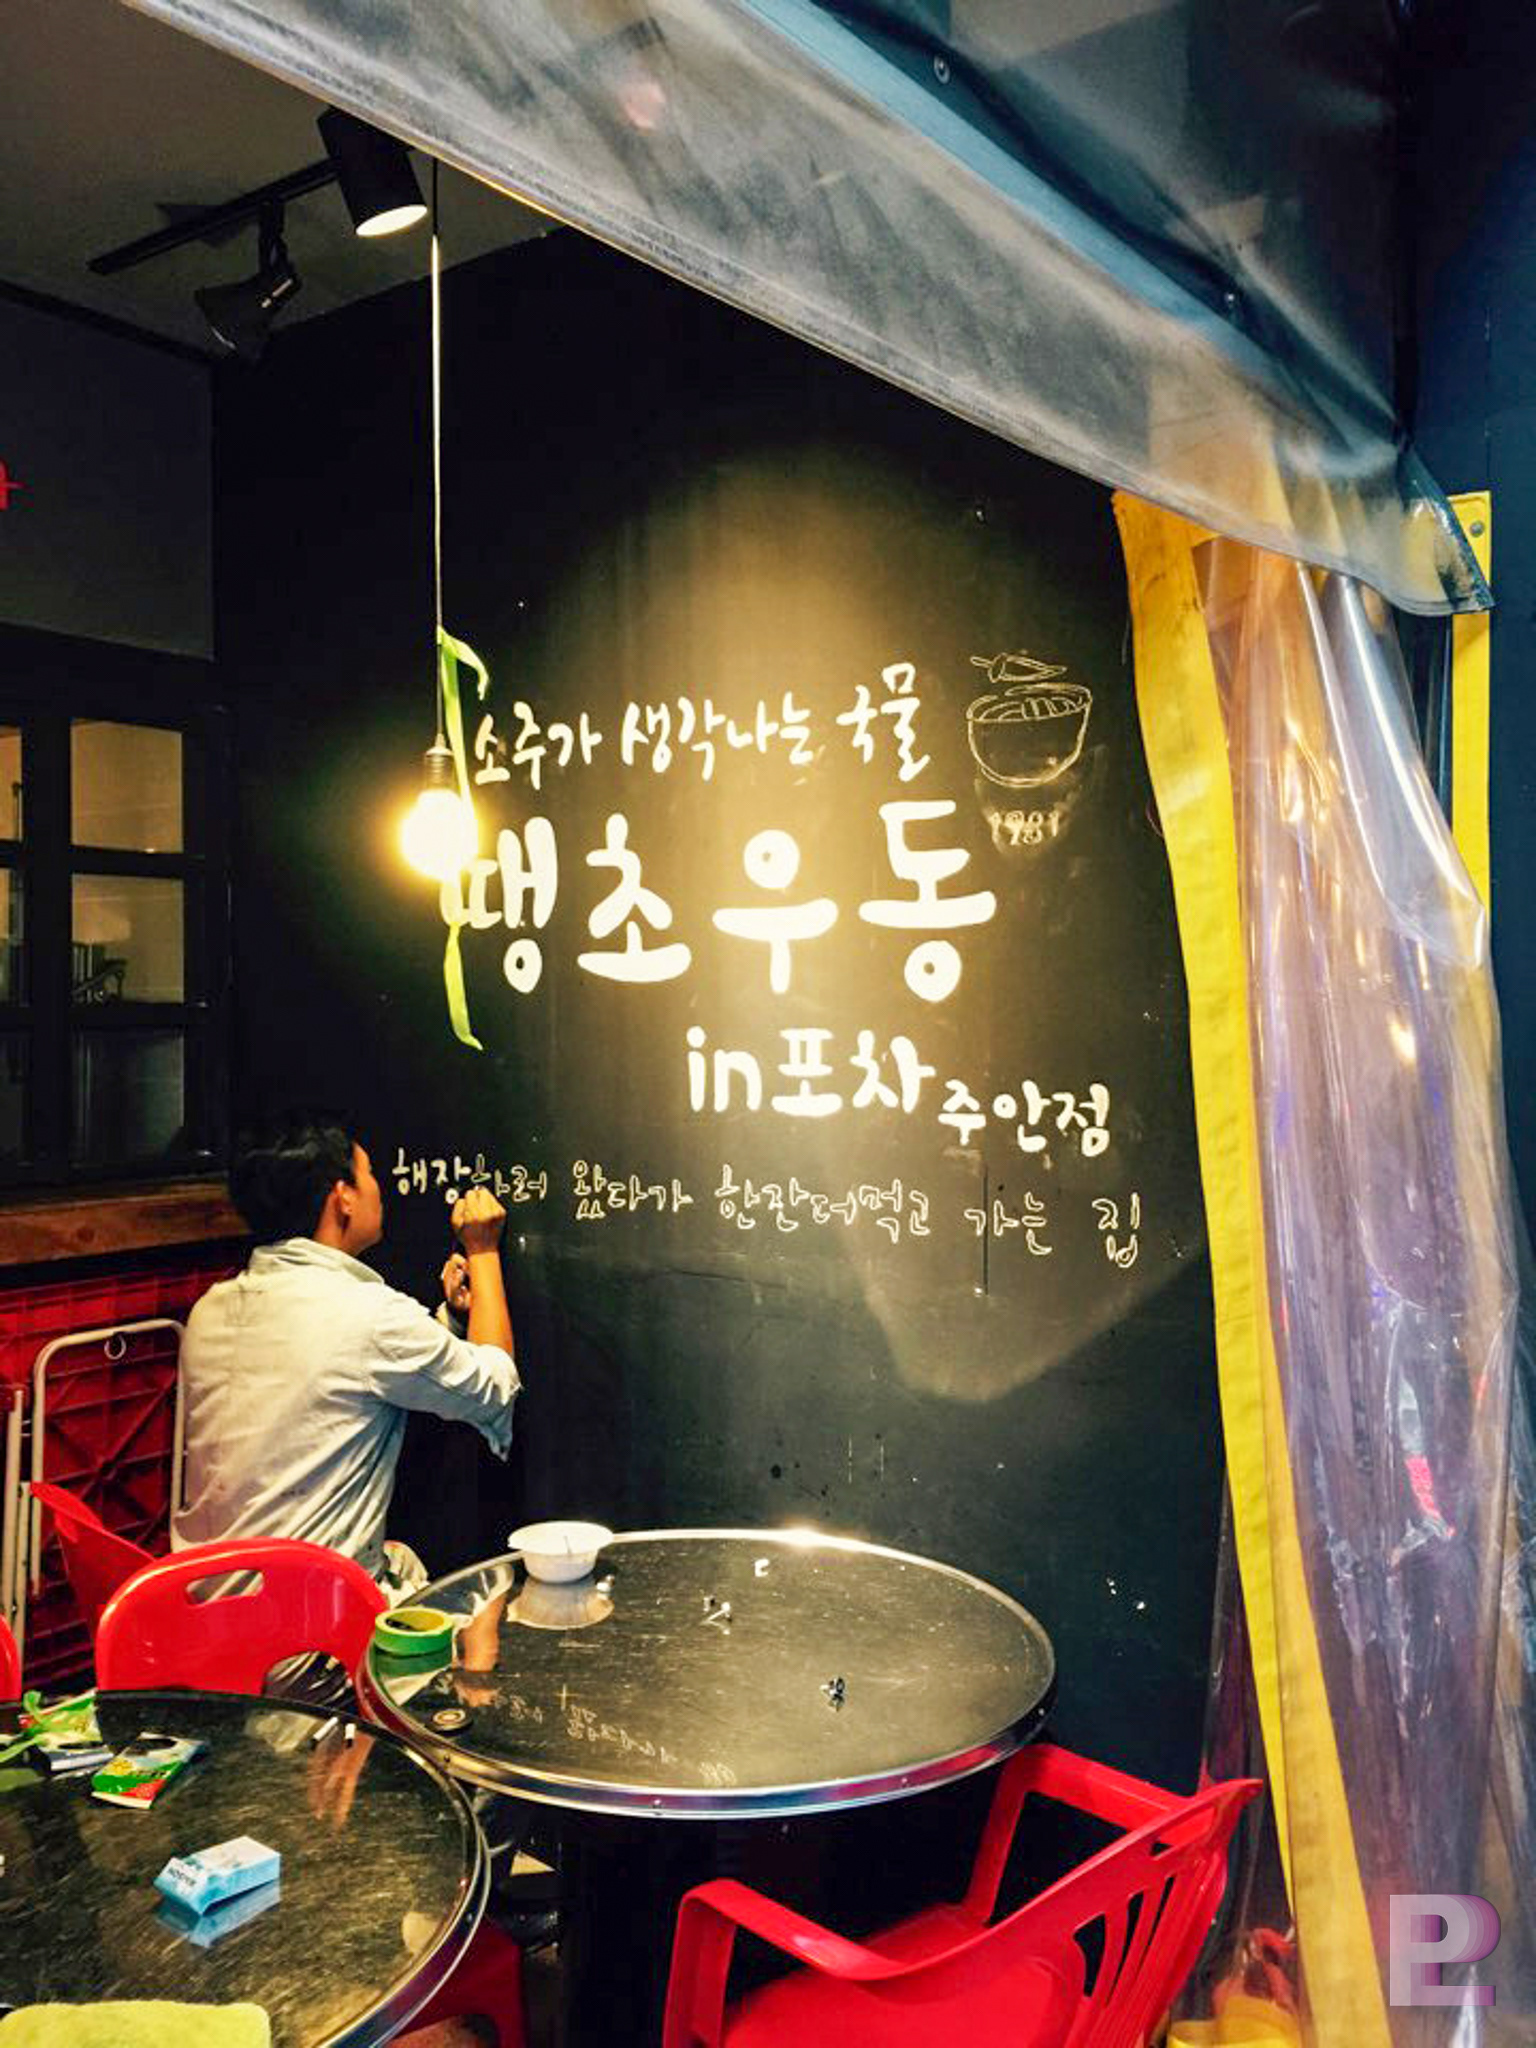 소주가 생각나는 국물
1981
땡초우동
in포차 주안점
해장하러 왔다가 한잔더먹고 가는 집
PL